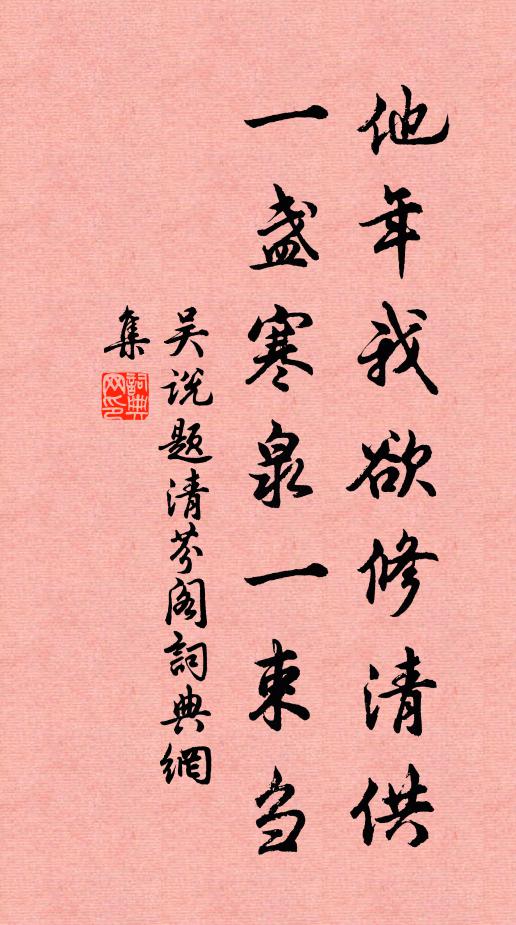 他年我欲修清供
一盏寒泉一束刍
吴说题清芬阁詞典網
集
詞典网印